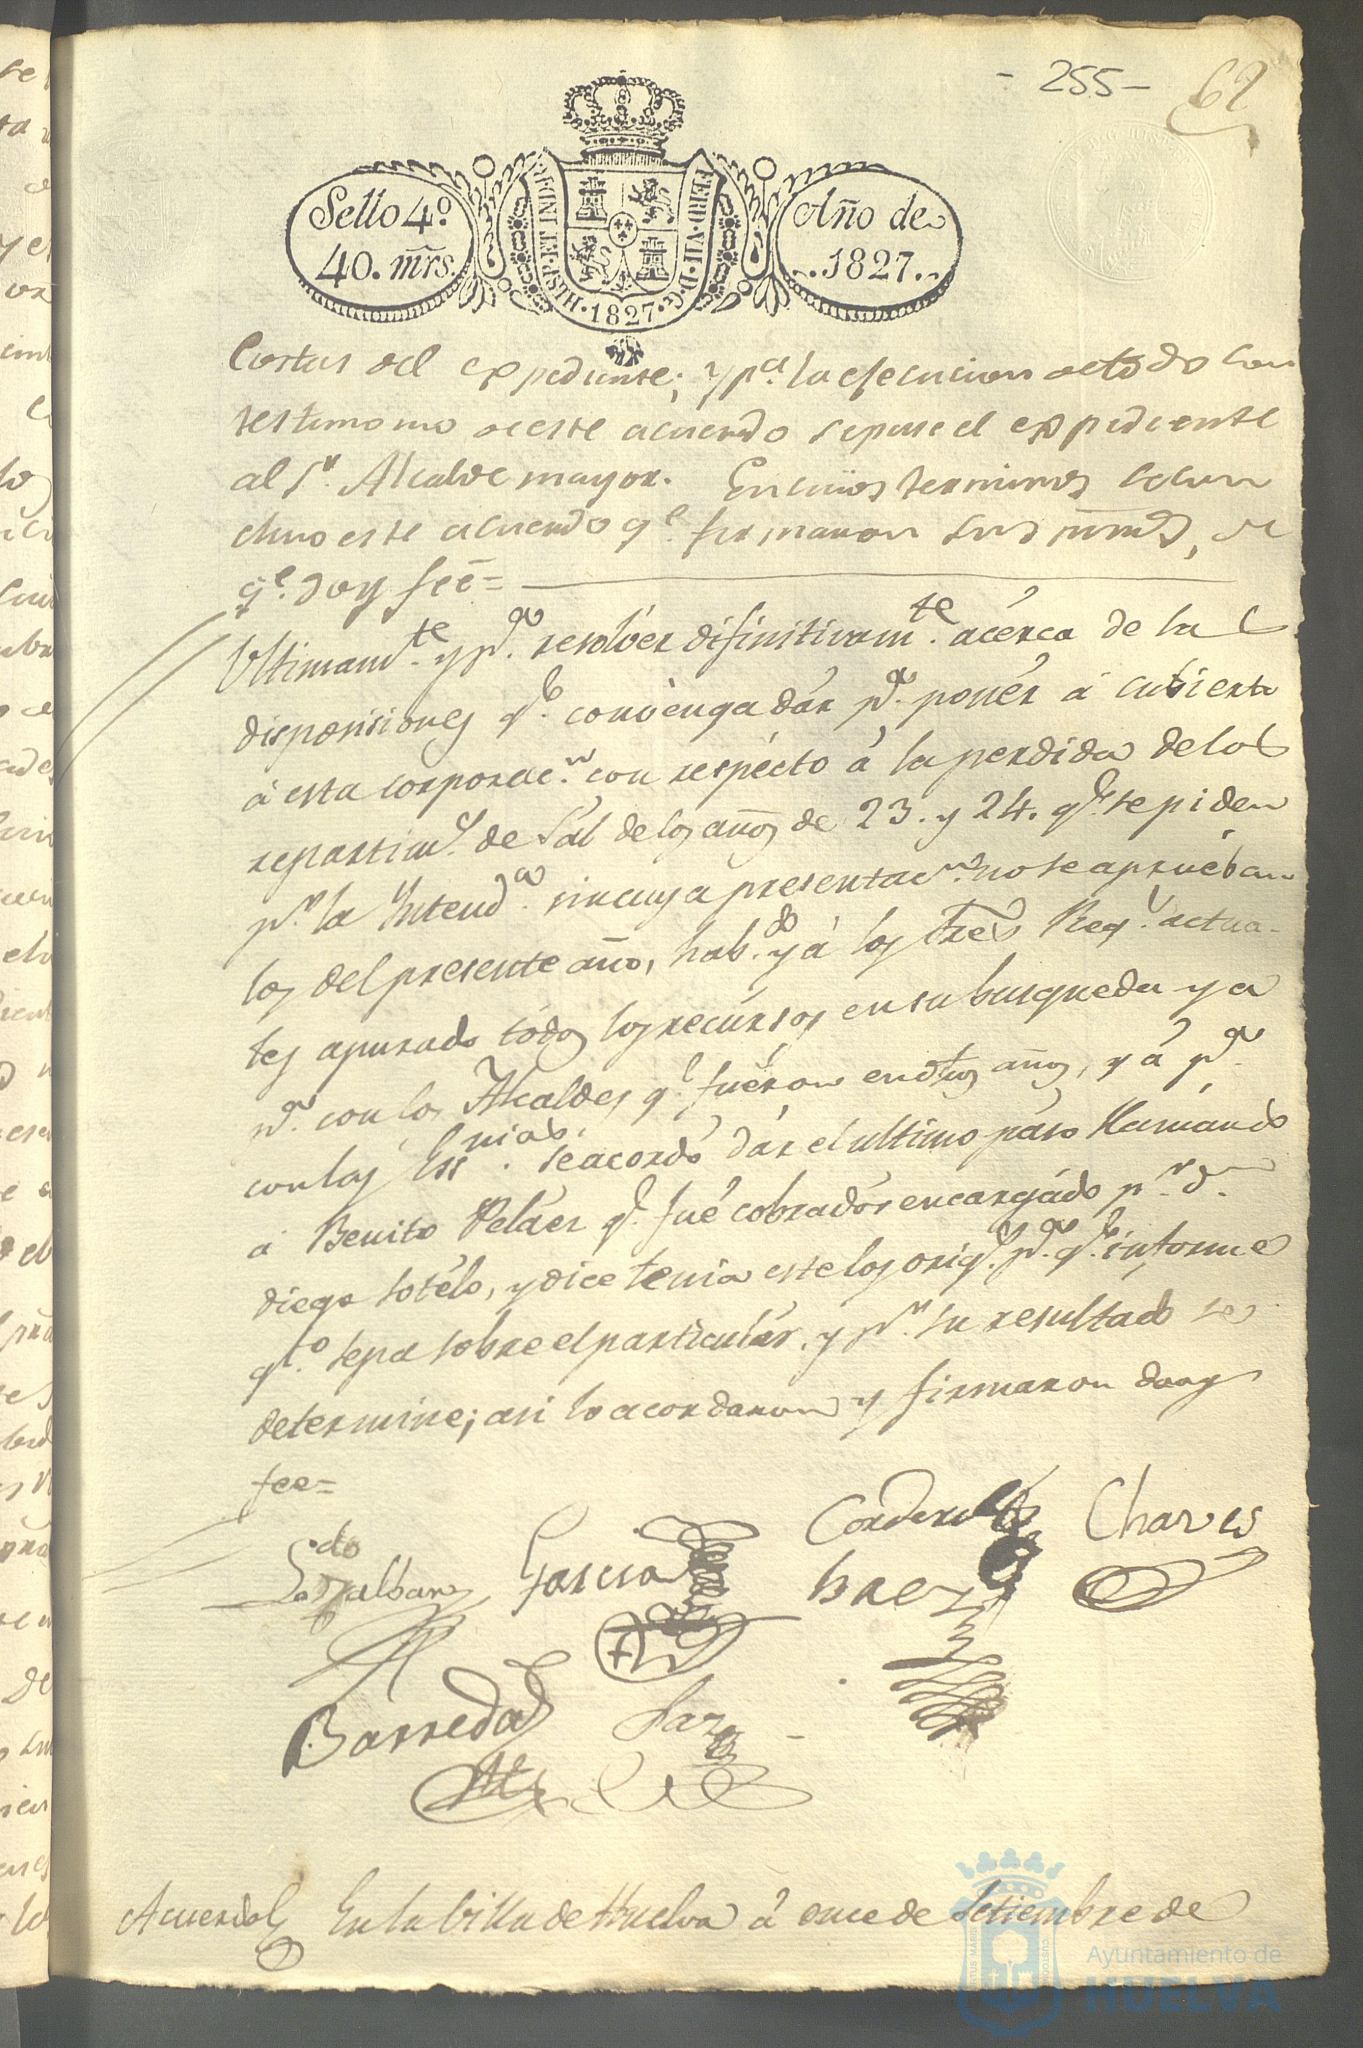 - 255 -
62
Sello 4º.
40. mrs.
HISP. ET IND. R.
FERD. VII. D. G.
1827
Año de
1827.
Costas del expediente; y pª. la efecucion de todo con
testimonio de este acuerdo se pase el expediente
al Sr. Alcalde mayor. En cuios terminos se con
cluio este acuerdo qe. firmaron sus mrds, de
qe. doy feé=
Ultimamte. y pª. resolver difinitivamte. acerca de la
disposiciones qe. convenga dár pª. ponér á cubierto
á esta corporacn. con respécto á la perdida de los
repartims. de Sal de los años de 23. y 24. qe. se piden
pr. la Intendª. sin cuya presentacn. no se apruéban
los del presente año, habdo. yá los tres Regs. actua-
les apurado tódos los recursos en su busqueda ya
pª. con los Alcaldes qe. fuéron en dhos años, y á pª.
con los Essnias. se acordó dár el ultimo páso llamando
á Benito Peláez qe. fué cobradór encargádo pr. dn.
diego Sotélo, y dice tenia este los origs. pª. qe. informe
qto. sepa sobre el particulár, y pr. su resultado se
determine; asi lo acordaron y firmaron doy
fee=
Ldo
Garcia
Cordero
Chaves
Baez
Barreda
Saz
Acuerdo En la Villa de Huelva á once de Setiembre de
Ayuntamiento de
HUELVA